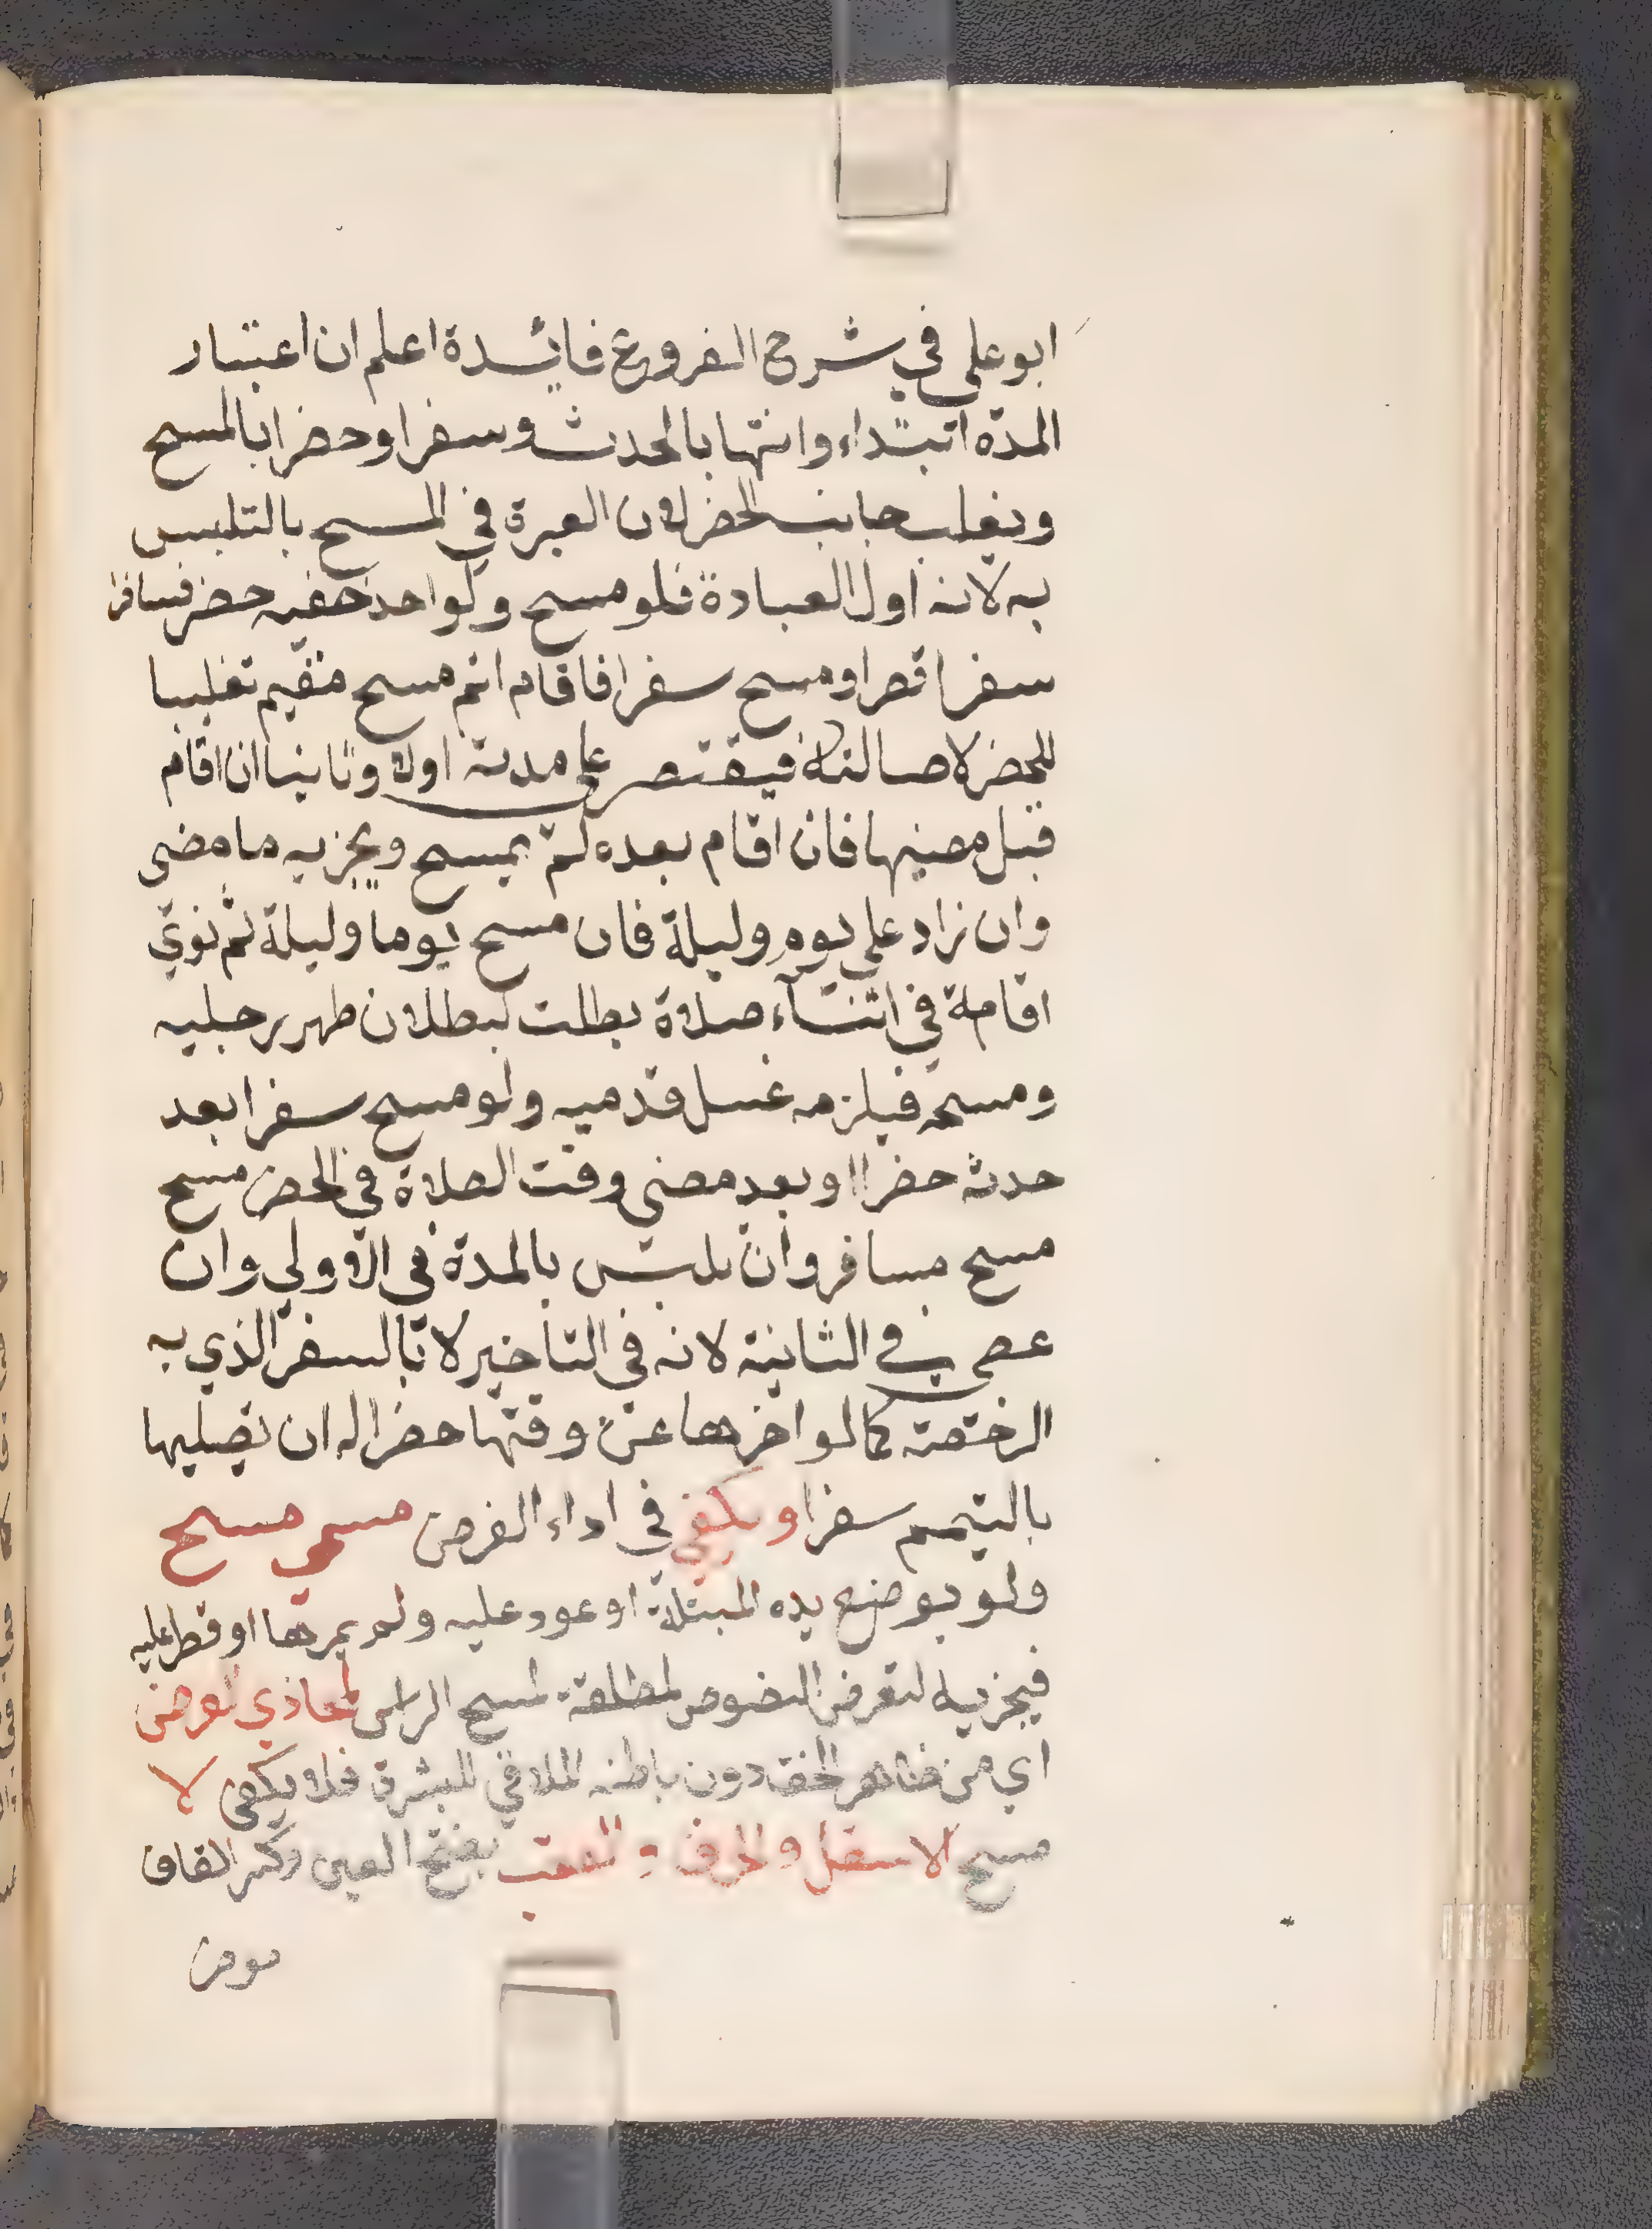 ابو علي في شرح الفروع فائدة اعلم ان اعتبار
المدة ابتداء وانتها بالحدث وسفرا وحضرا بالمسح
ويغلب جانب الحضر لان العبرة في المسح بالتلبس
به لانه اول العبادة فلو مسح ولو احد خفيه حضر فسافر
سفرا قصر او مسح سفرا فاقام اتم مسح مقيم تغليبا
للحضر لاصالته فيقتصر على مدته اولا وثانيا ان اقام
قبل مضيها فان اقام بعده لم يمسح ويجزيه ما مضى
وان زاد علي يوم وليلة فان مسح يوما وليلة ثم نوي
اقامة في اثنآء صلاة بطلت لبطلان طهر رجليه
ومسحه فيلزمه غسل قدميه ولو مسح سفرا بعد
حدثه حضرا او بعد مضي وقت الصلاة في الحضر مسح
مسح مسافر وان تلبس بالمدة في الاولي وان
عصى في الثانية لانه في التاخير لا بالسفر الذي به
الرخصة كما لو اخرها عن وقتها حضرا له ان يصليها
بالتيمم سفرا ويكفي في اداء الفرض مسمى مسح
ولو بوضع يده المبتلة او عود عليه ولم يمرها او قطر عليه
فيجزيه لتعرض النصوص لمطلقه لمسح الراس لمحاذي لفرض
اي من ظاهر الخف دون باطنه الملاقي للبشرة فلا يكفي لا
مسح الاسفل والحرف والعقب بفتح العين وكسر القاف